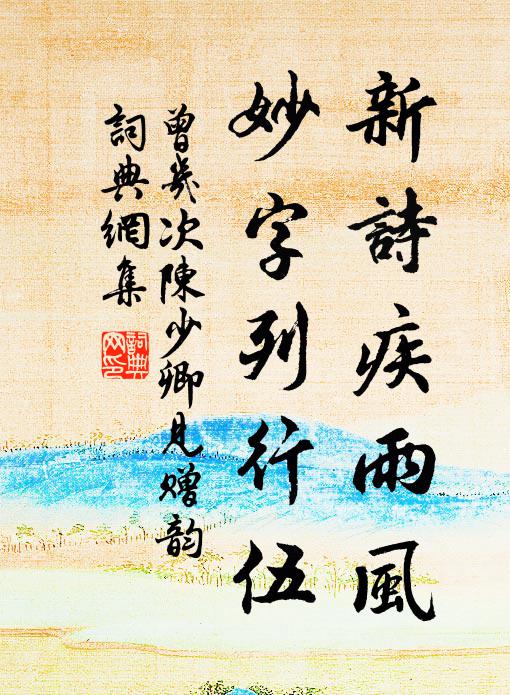 新詩疾雨風
妙字列行伍
曾幾次陳少卿見贈韵
詞典網集
詞典
网印